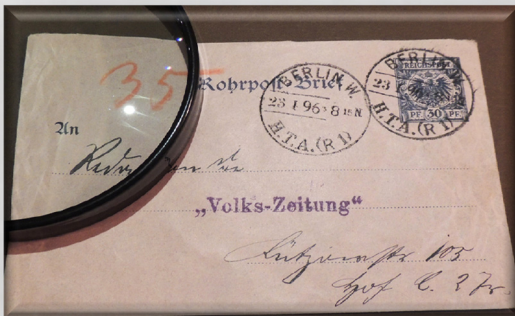 35
Rohrpost-Brief
BERLIN W.
23 1 96 8
H.T.A.(R 1)
BERLIN W.
23 1
H.T.A.(R 1)
REICHSPOST
PF. 30 PF.
An
die
„Volks-Zeitung“
Lützowstr 105
Hof